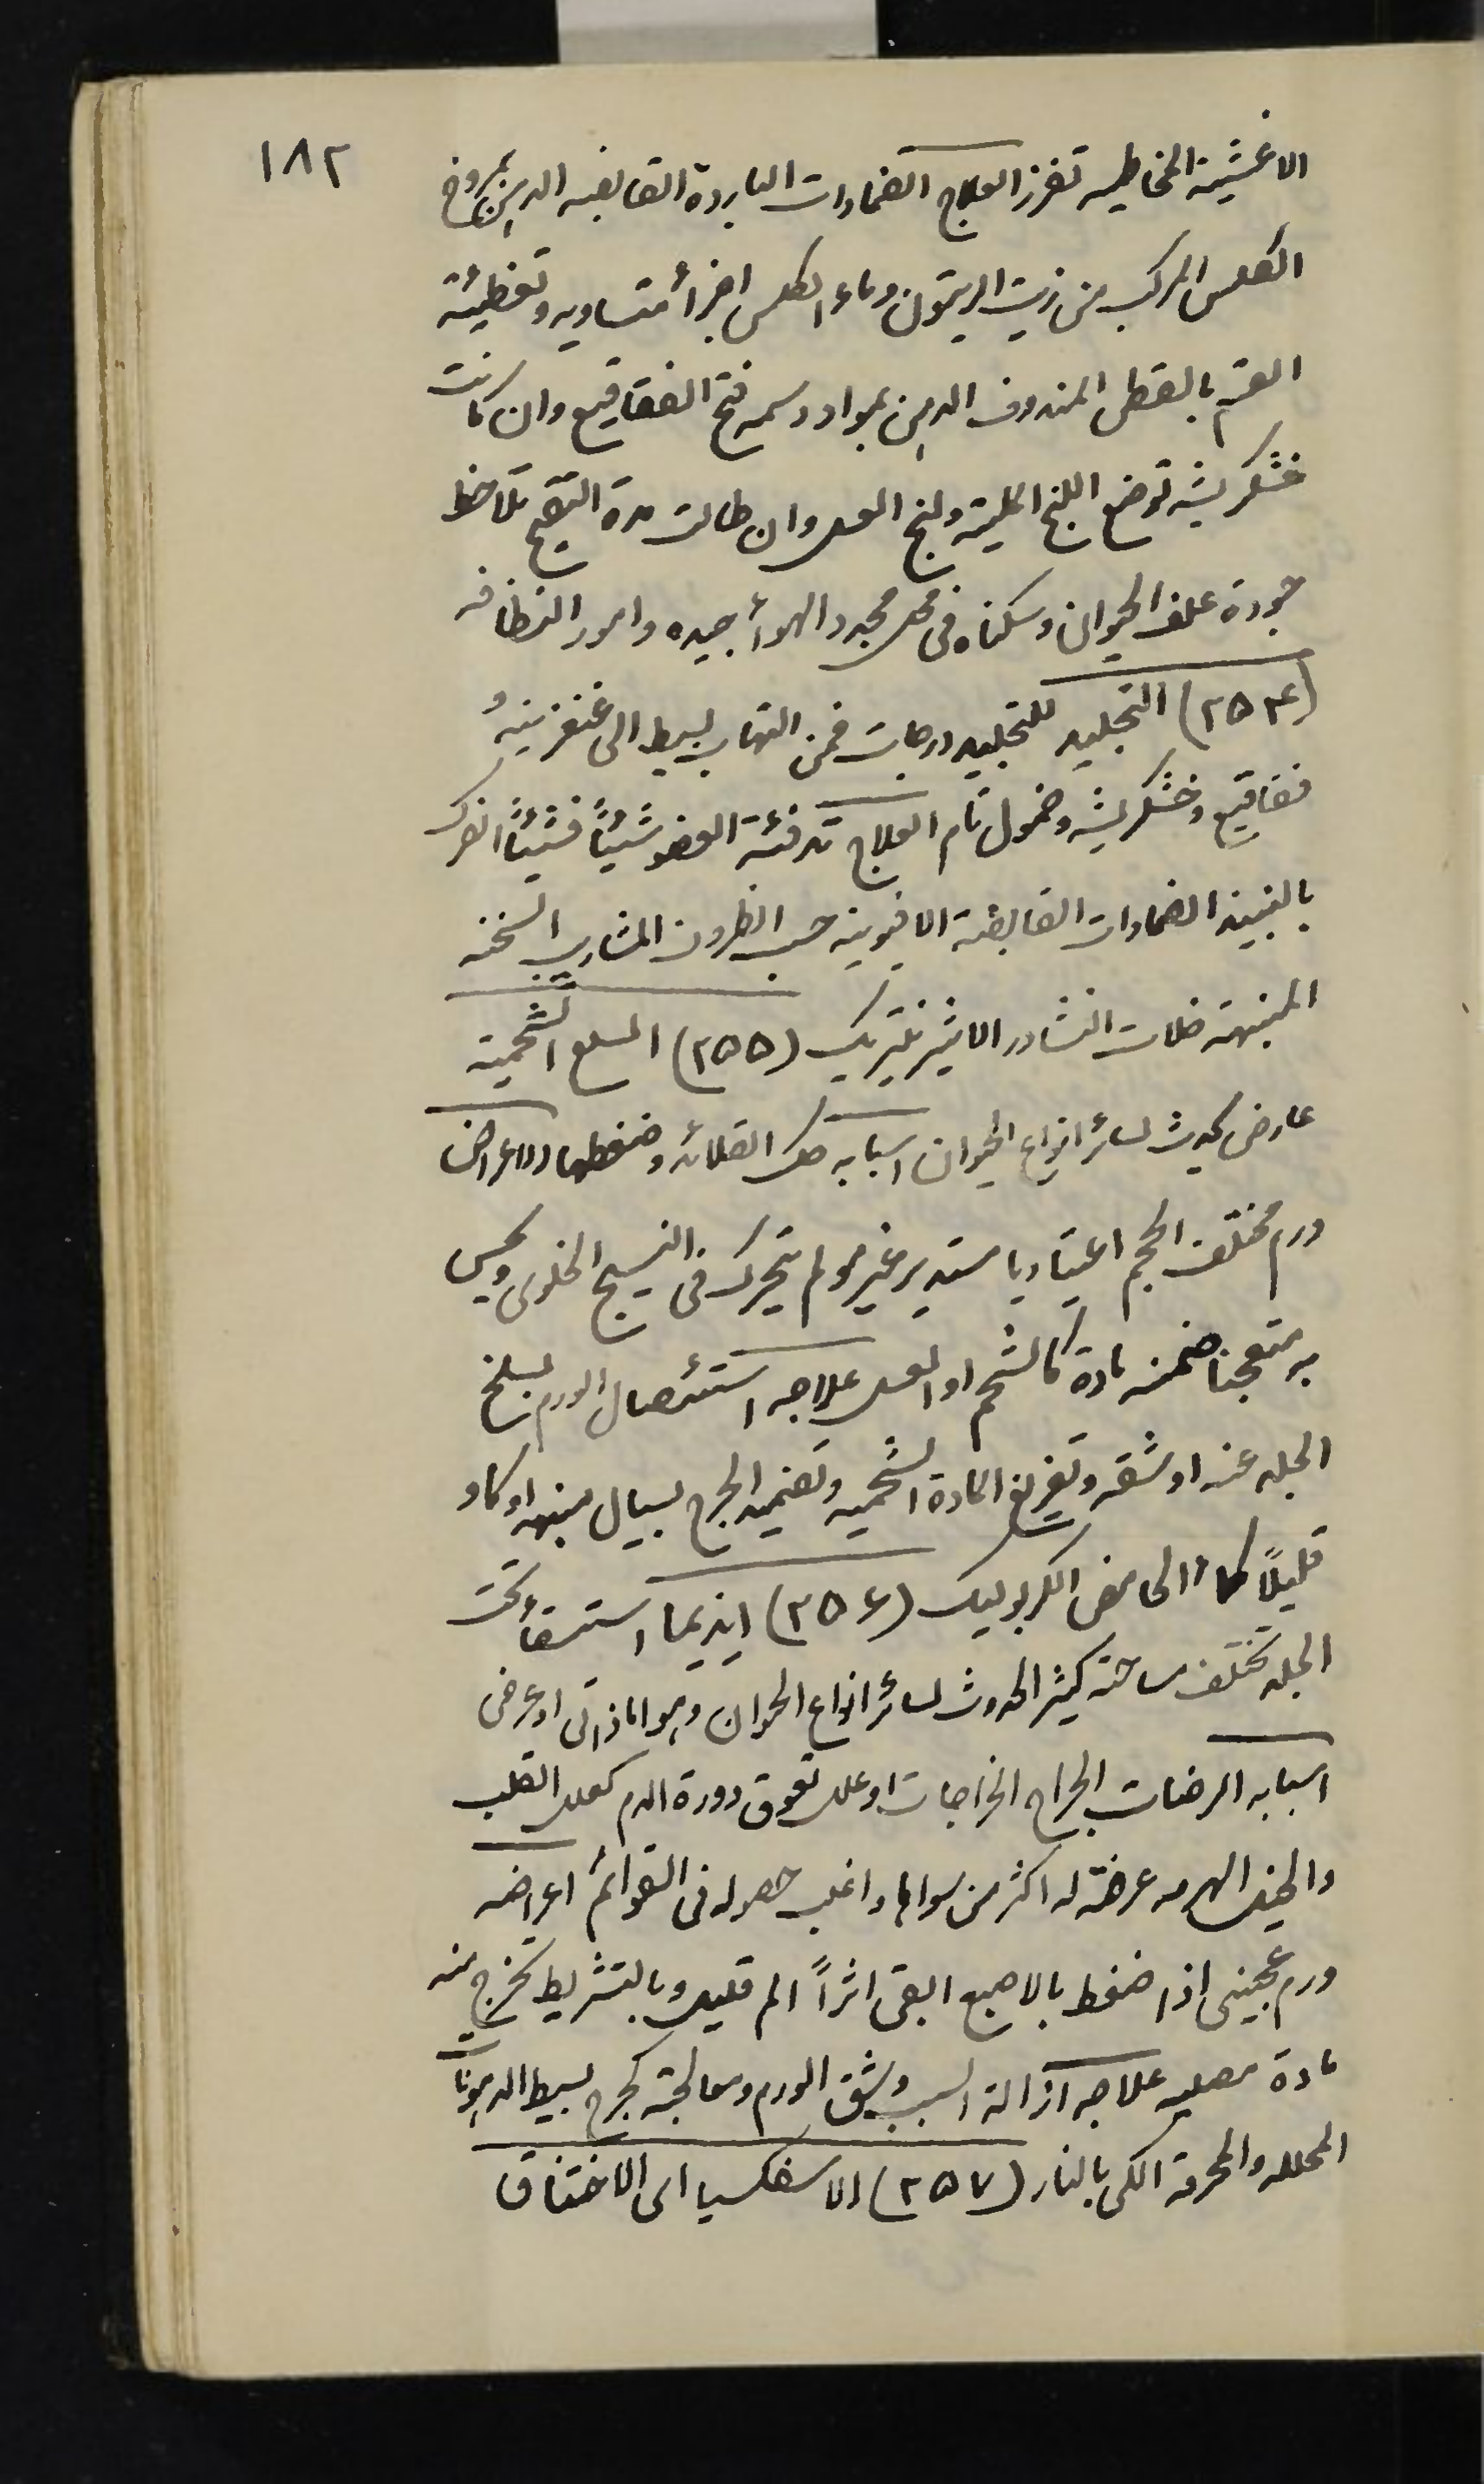 ١٨٢
الاغشية المخاطيه تفرز العلاج الضمادات الباردة القابضه الدهن بمروخ
الكلس المركب من زيت الزيتون وماء الكلس اجزأ متساويه وتغطيئة
القسم بالقطن المندوف الدهن بمواد دسمه فتح الفقاقيع وان كانت
خشكريشه توضع اللبخ الملينة ولبخ العسل وان طالت مدة التقيح تلاحظ
جودة علف الحيوان وسكناه فى محل مجدد الهوأ جيده وامور النظافه
(٢٥٤) التجليد للتجليد درجات فمن التهاب بسيط الى غنغرينه و
فقاقيع وخشكريشه وخمول تام العلاج تدفئة العضو شيئاً فشيئاً الفرك
بالنبيذ الضمادات القابضة الافيونيه حسب الظروف المشاريب السخنه
المنبهة خلات النشادر الاثير نيتريك (٢٥٥) السلع الشحمية
عارض يحدث لسائر انواع الحيوان اسبابه حك القلائد وضغطها والاعراض
ورم مختلف الحجم اعتياديا مستدير غير مولم يتحرك فى النسيج الخلوى ويحس
به متعجنا ضمنه مادة كالشحم او العسل علاجه استئصال الورم بسلخ
الجلد عنه او شقه وتفريغ المادة الشحميه وتضميد الجرح بسيال منبه او كاو
قليلاً كمأ الحامض الكربوليك (٢٥٦) ايذيما استسقأ تحت
الجلد تختلف ساحته كثير الحدوث لسائر انواع الحيوان وهو اما ذاتى او عرضى
اسبابه الرضات الجراح الخراجات او علل تعوق دورة الدم كعلل القلب
والخيل الهرمه عرضة له اكثر من سواها واغلب حصوله فى القوائم اعراضه
ورم عجينى اذا ضغط بالاصبع ابقى اثراً الم قليل وبالتشريط تخرج منه
مادة مصليه علاجه ازالة السبب وشق الورم ومعالجته كجرح بسيط الدهونات
المحلله والمحرقة الكى بالنار (٢٥٧) الاسفكسيا اى الاختناق